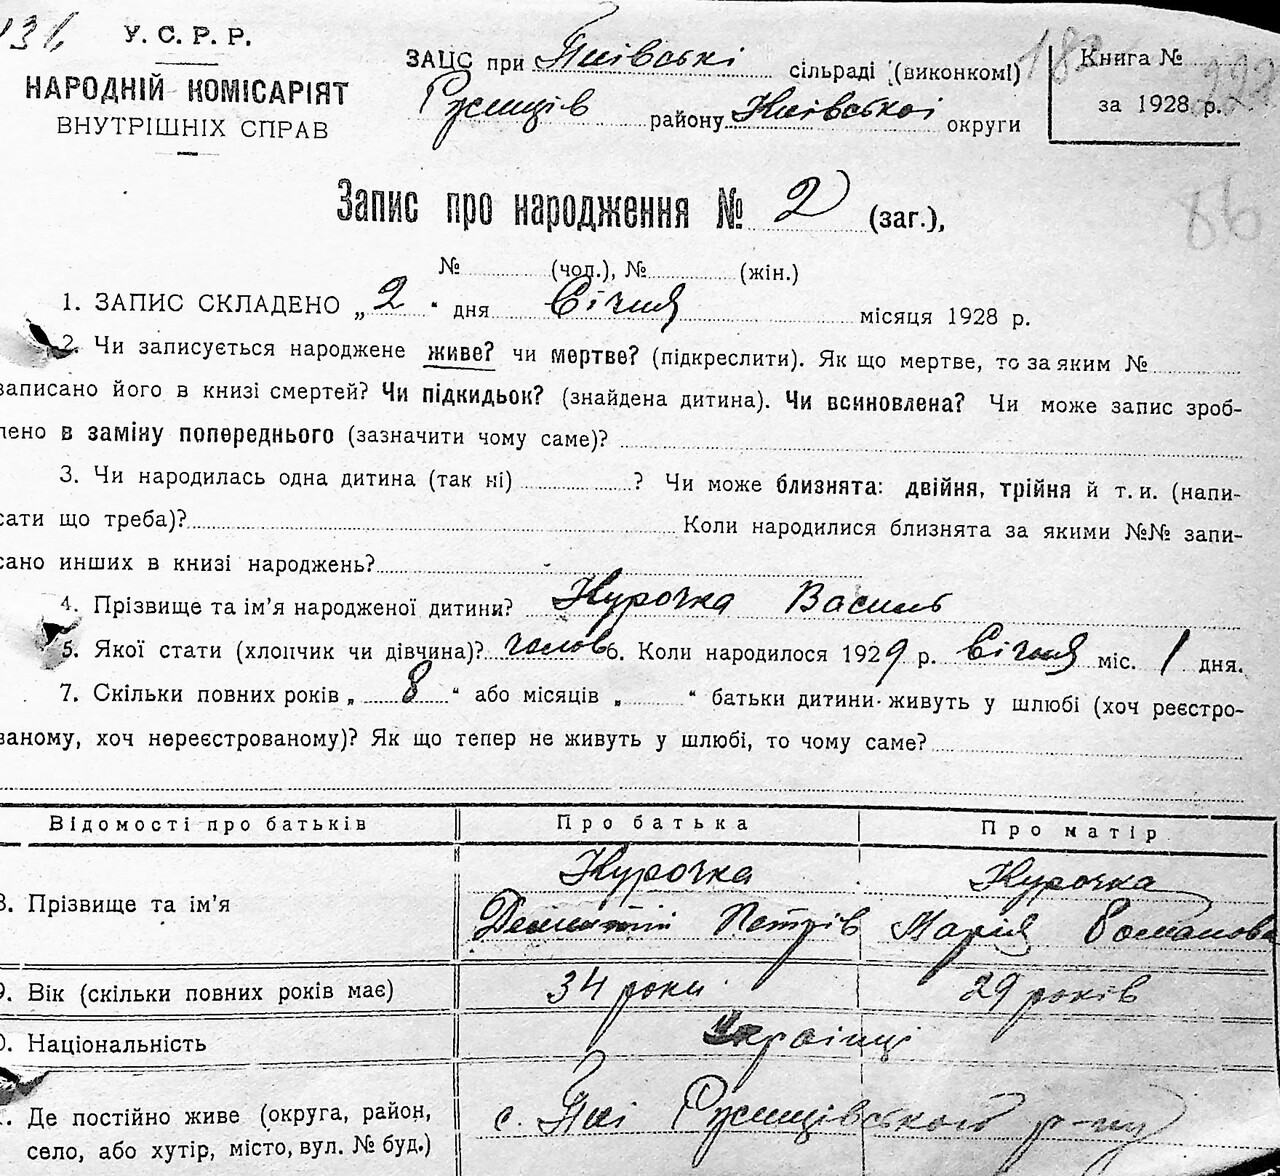 У. С. Р. Р.
НАРОДНІЙ КОМІСАРІЯТ
ВНУТРІШНІХ СПРАВ
ЗАЦС при Пиївські сільраді (виконкомі)
Ржищів району Київської округи
182
Книга №
за 1928 р.
86
Запис про народження № 2 (заг.),
№ (чол.), № (жін.)
1. ЗАПИС СКЛАДЕНО „2“ дня Січня місяця 1928 р.
2. Чи записується народжене живе? чи мертве? (підкреслити). Як що мертве, то за яким №
записано його в книзі смертей? Чи підкидьок? (знайдена дитина). Чи всиновлена? Чи може запис зроб-
лено в заміну попереднього (зазначити чому саме)?
3. Чи народилась одна дитина (так ні) ? Чи може близнята: двійня, трійня й т. и. (напи-
сати що треба)? Коли народилися близнята за якими №№ запи-
сано инших в книзі народжень?
4. Прізвище та ім’я народженої дитини? Курочка Василь
5. Якої стати (хлопчик чи дівчина)? чолов 6. Коли народилося 1929 р. Січня міс. 1 дня.
7. Скільки повних років „ 8 “ або місяців „ “ батьки дитини живуть у шлюбі (хоч реєстро-
ваному, хоч нереєстрованому)? Як що тепер не живуть у шлюбі, то чому саме?
Відомості про батьків Про батька Про матір
8. Прізвище та ім’я Курочка Курочка
Дементій Петрів Марія Романова
9. Вік (скільки повних років має) 34 роки 29 років
Національність Українці
Де постійно живе (округа, район, с. Пиї Ржищівського р-ну
село, або хутір, місто, вул. № буд.)